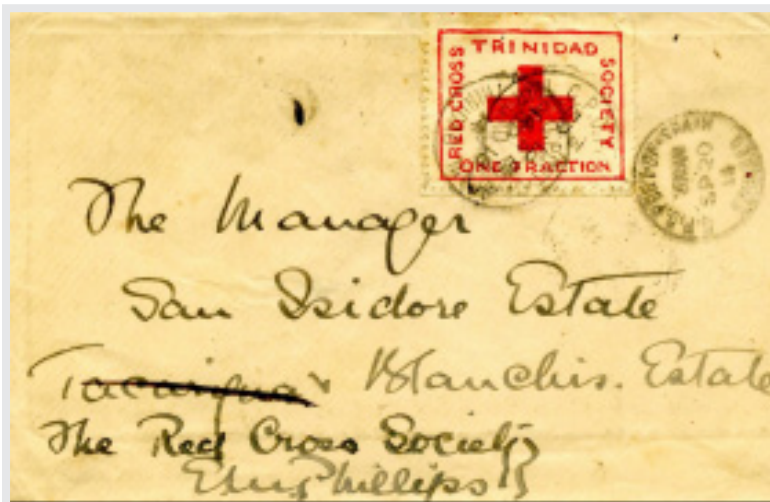 TRINIDAD
RED CROSS
SOCIETY
ONE FRACTION
The Manager
San Isidore Estate
Tacarigua Blanchis. Estate
The Red Cross Society
Phillips